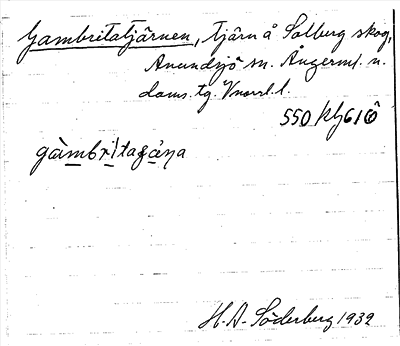 Gambritatjärnen, tjärn å Solberg skog,
Anundsjö sn. Ångerml. n.
doms. tg. Vnorrl. l.
550 Kly616
gàmbritaʂǻṇa
H. A. Söderberg 1932